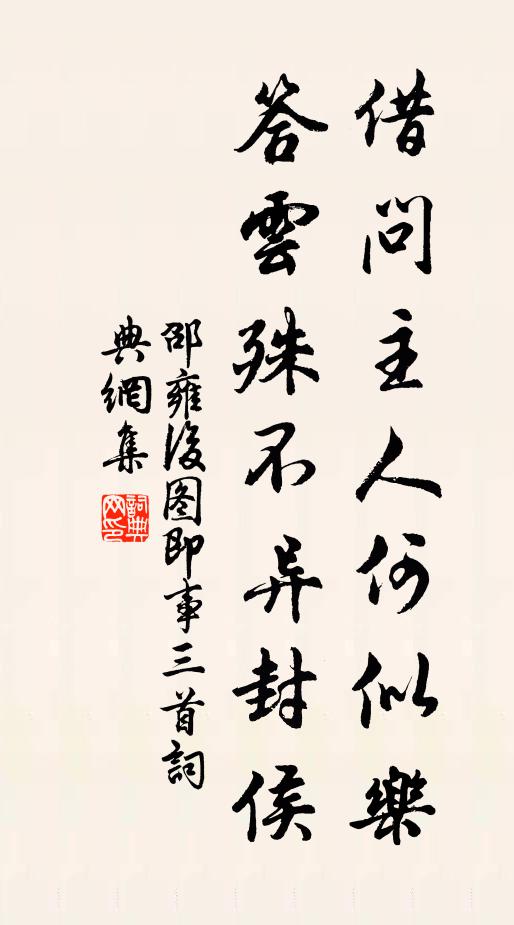 借問主人何似樂
答雲殊不异封侯
邵雍後園即事三首詞
典網集
詞典
网印